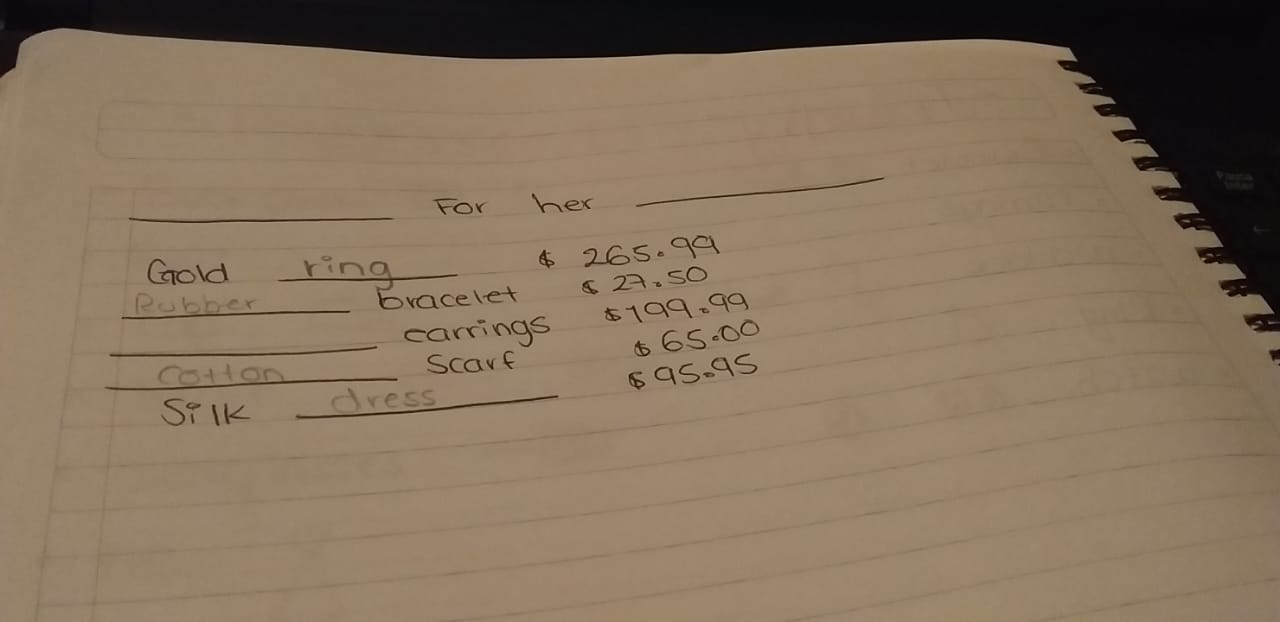 For her
Gold ring $ 265.99
Rubber bracelet $ 27.50
earrings $199.99
cotton scarf $ 65.00
Silk dress $ 95.95